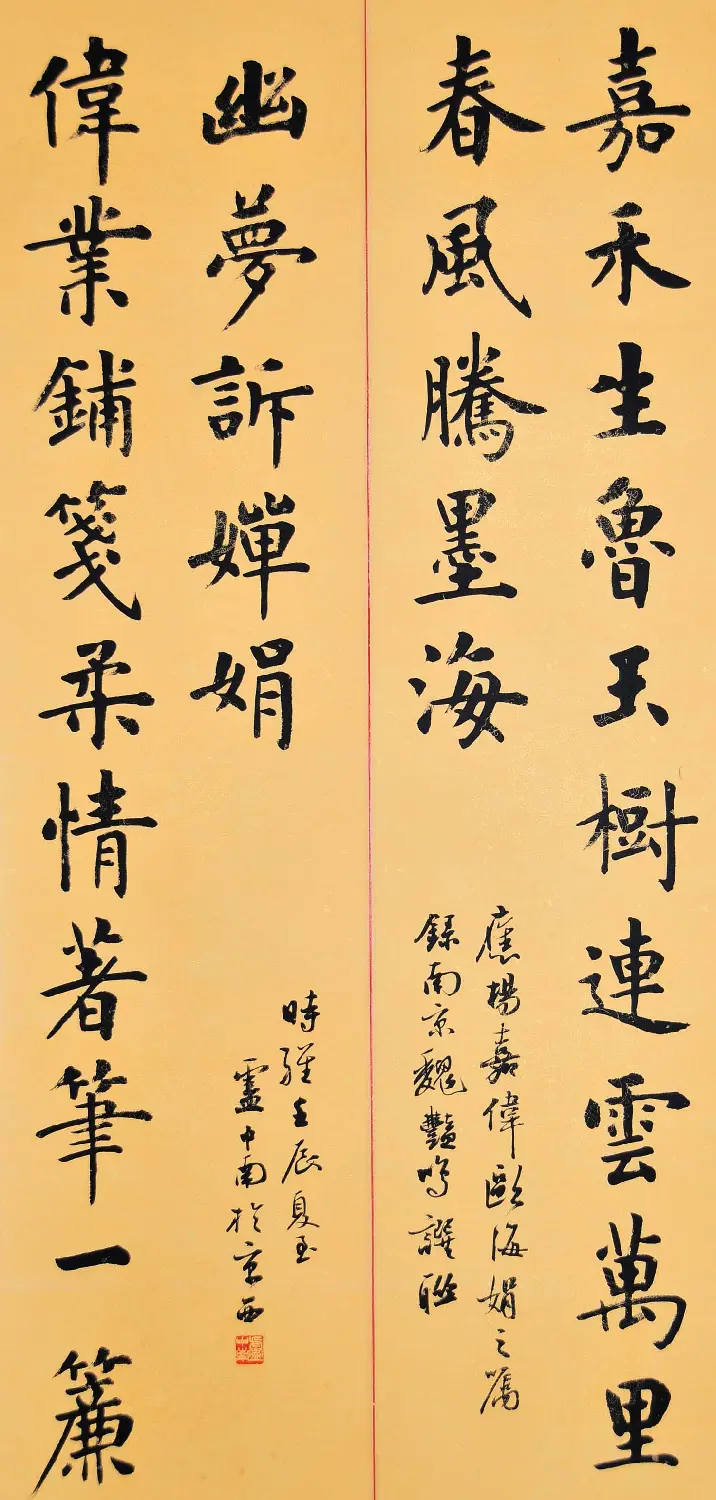 嘉禾生魯玉樹連雲萬里
春風騰墨海
應楊嘉偉歐海娟之囑
錄南京魏豔鳴譔聯
偉業鋪箋柔情著筆一簾
幽夢訴嬋娟
時維壬辰夏至
盧中南於京西